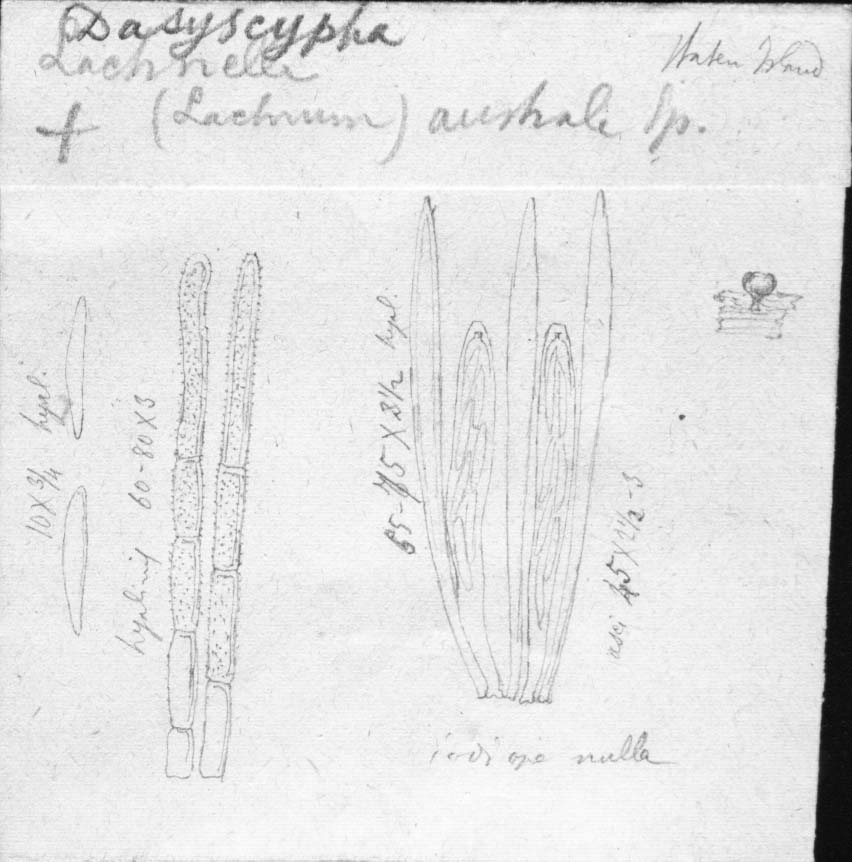 Dasyscypha
Staten Island
Lachnella
+ (Lachnum) australe Sp.
10 X 3/4 hyal.
hyaline 60-80 X 3
65-75 X 3 1/2 hyal.
asci 45 X 2 1/2-3
iodi ope nulla